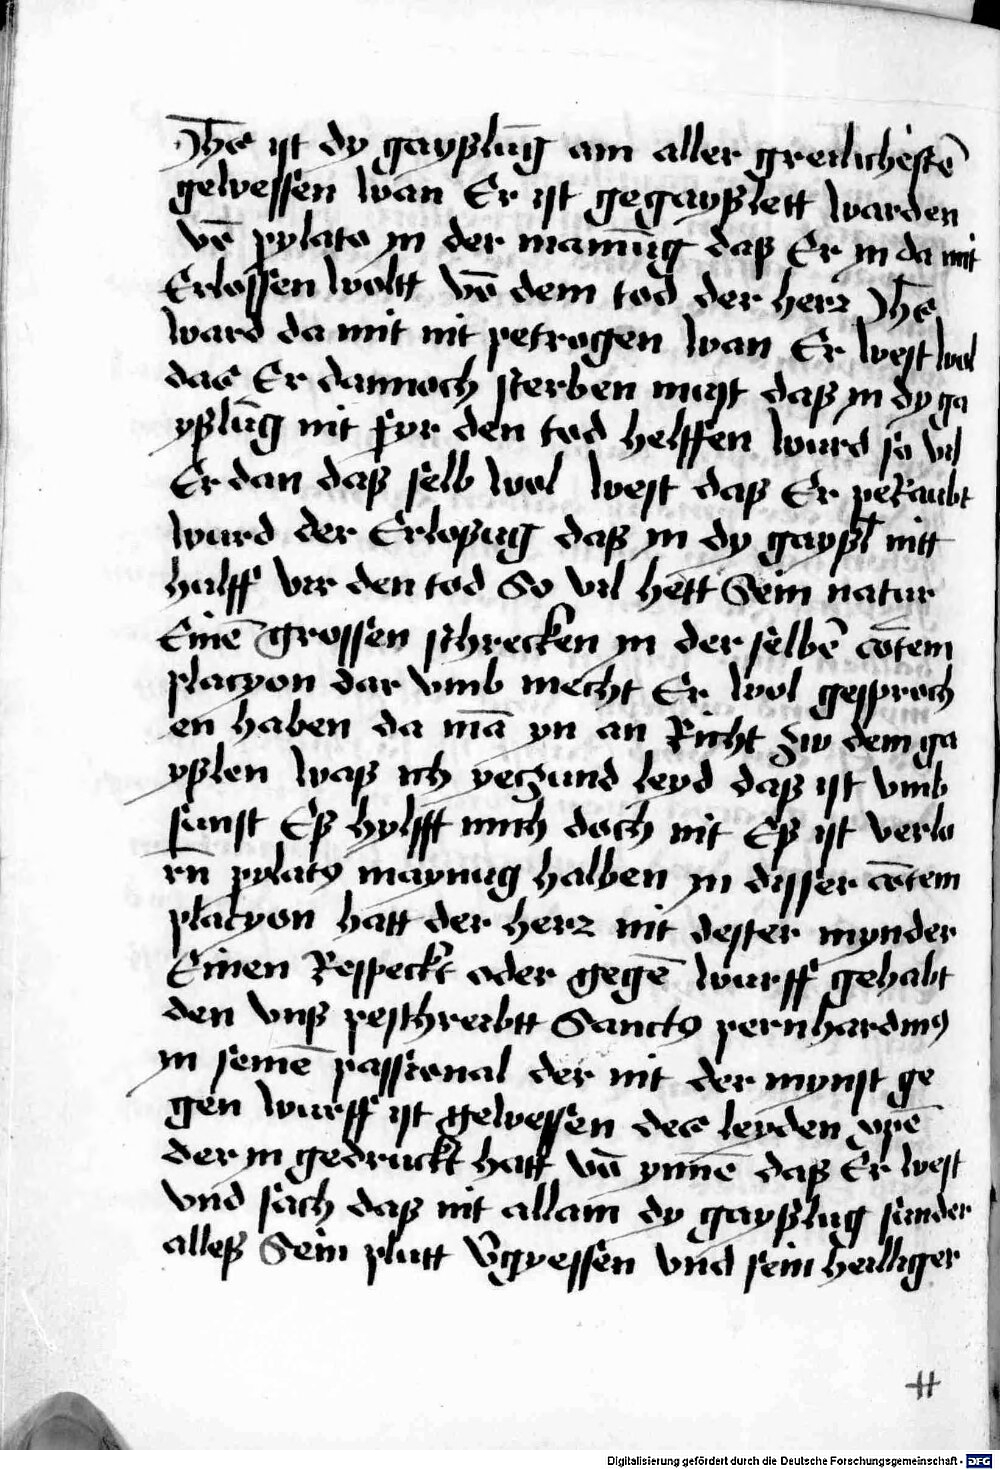 Jhs ist dy gayßlūg am aller greilichestē
gewessen wan Er ist gegayßlett warden
vō pylato yn der mainūg daß Er yn da mit
Erlossen woltt vō dem tod der herz Jhs
ward da mit nit petrogen wan Er west wol
das Er dannoch sterben must daß yn dy ga
yßlūg nit fyr den tod helffen wurd so vil
Er dan daß selb wol west daß Er peraubt
wurd der Erloßug daß yn dy gayßl nitt
hulff vir den tod So vil hett Sein natur
Einē grossen schrecken yn der selbē cōtem
placyon dar vmb mecht Er wol gesproch
en haben da mā yn an Richt zw dem ga
yßlen waß ich yeczund leyd daß ist vmb
sunst Eß hylfft mich doch nit Eß ist verlo
rn̄ pylatꝰ maynug halben yn disser cōtem
placyon hatt der herz nit dester mynder
Einen Respeckt oder gegē wurff gehabt
den vnß peschreibtt Sanctꝰ pernhardinꝰ
yn seinē passional der nit der mynst ge
gen wurff ist gewessen des leyden xp̄ē
der yn gedruckt hatt vō ynnē daß Er west
vnd sach daß nit allain dy gayßlug sunder
alleß Sein plutt v̄gyessen vnd sein heilliger
Digitalisierung gefördert durch die Deutsche Forschungsgemeinschaft - DFG